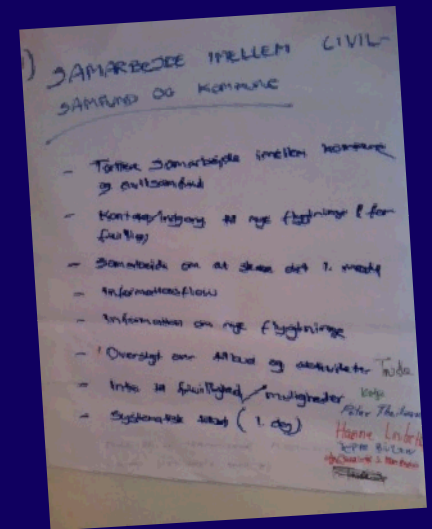 SAMARBEJDE IMELLEM CIVIL-
SAMFUND OG KOMMUNE
- Tættere samarbejde imellem kommune
og civilsamfund
- Kontakt/indgang til nye flygtninge
frivillige
- Samarbejde om at skabe det 1. møde
- Informationsflow
- Information om nye flygtninge
- Oversigt over tilbud og aktiviteter Trudie
- Intro til frivillighed/muligheder
- Systematisk (1. dag)
Peter
Hanne Lisbeth